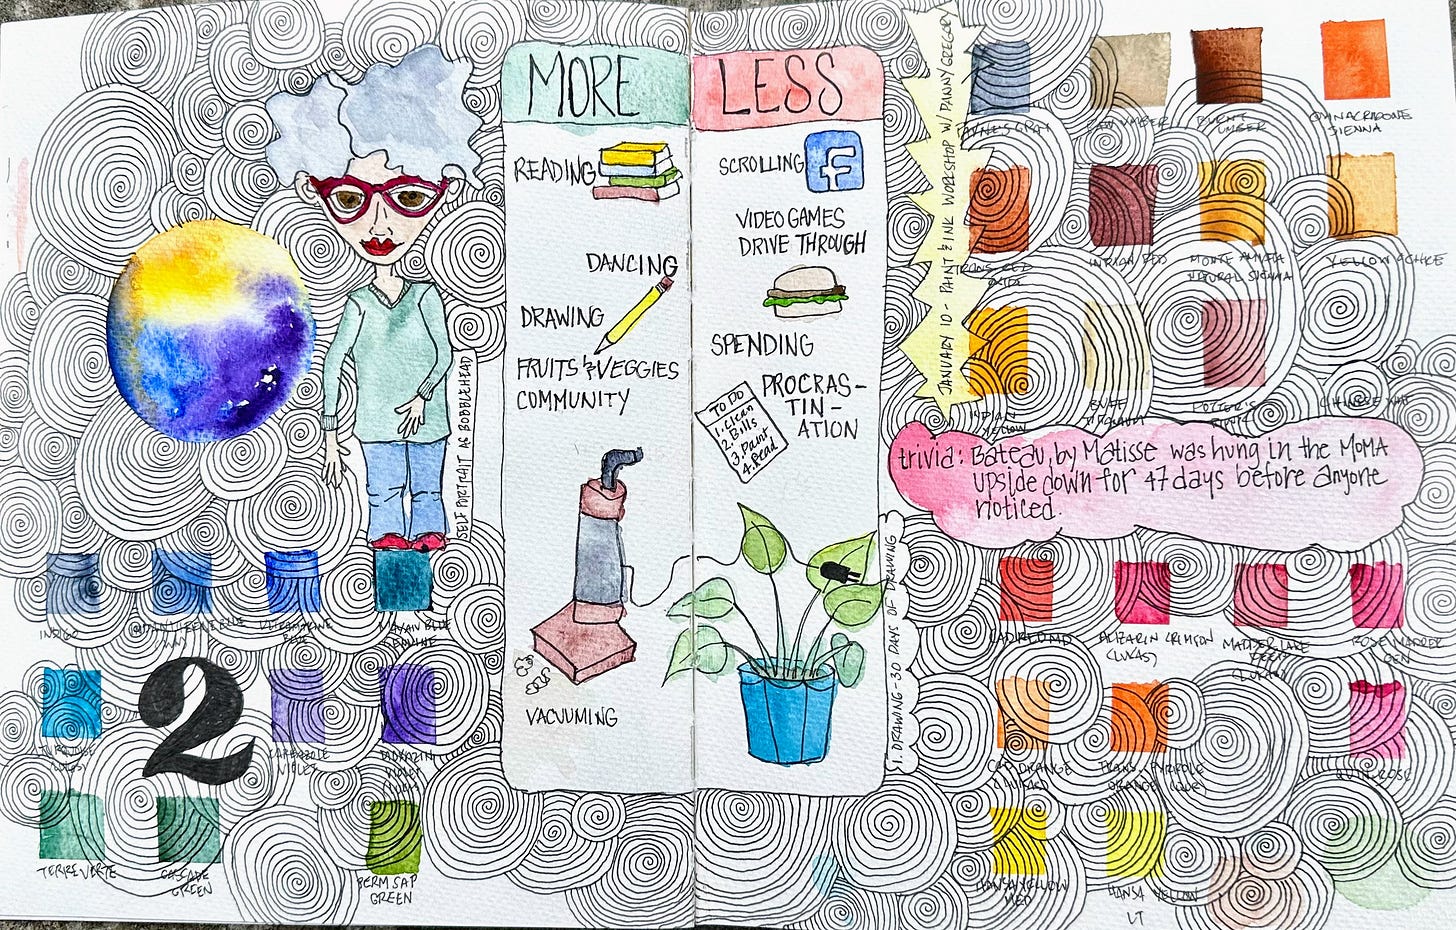 MORE
READING
DANCING
DRAWING
FRUITS & VEGGIES
COMMUNITY
VACUUMING
LESS
SCROLLING
f
VIDEO GAMES
DRIVE THROUGH
SPENDING
PROCRAS-
TIN-
ATION
TO DO
1. Clean
2. Bills
3. Paint
4. Read
SELF PORTRAIT AS BOBBLEHEAD
JANUARY 10 - PAINT & INK WORKSHOP W/ DANNY GREGORY
1. DRAWING - 30 DAYS OF DRAWING
trivia: Bateau, by Matisse was hung in the MoMA
upside down for 47 days before anyone
noticed.
2
INDIGO
ULTRAMARINE
BLUE
MAYAN BLUE
GENUINE
TURQUOISE
VIOLET
TERRE VERTE
CASCADE
GREEN
PERM SAP
GREEN
PAYNE'S GRAY
RAW UMBER
BURNT
UMBER
QUINACRIDONE
SIENNA
TRANS RED
OXIDE
INDIAN RED
MONTE AMIATA
NATURAL SIENNA
YELLOW OCHRE
INDIAN
YELLOW
BUFF
TITANIUM
POTTER'S
PINK
CHINESE WHT
CAD RED MD
ALIZARIN CRIMSON
(LUKAS)
MADDER LAKE
DEEP
(LUKAS)
ROSE MADDER
GEN
CAD ORANGE
TRANS PYRROLE
ORANGE
QUIN ROSE
HANSA YELLOW
MED
HANSA YELLOW
LT